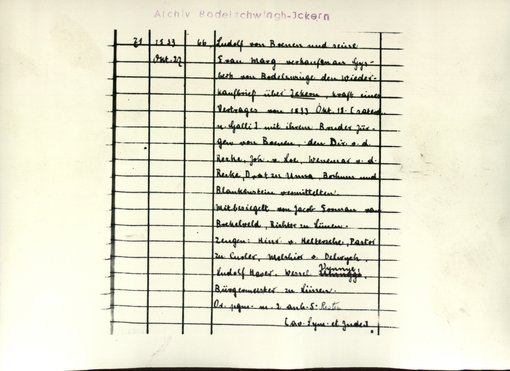 Archiv Bodelschwingh-Ickern
71 1533 66 Ludolf von Boenen und seine
Okt. 27 Frau Marg verkaufen an Gys-
bert von Bodelswinge den Wieder-
kaufbrief über Ickern, kraft eines
Vertrages von 1533 Okt. 18. [
u. Galli] mit ihrem Bruder Jür-
gen von Boenen, den Dir. v. d.
Recke, Joh. v. Loe, Wenemar v. d.
Recke, Drat zu Unna, Bochum und
Blankenstein vermittelten.
Mitbesiegelt von Jacob van
Brekelveld, Richter zu Lünen.
Zeugen: Hinr. v. Pastor
zu Melchior v. Delwych,
Ludolf Haser, Wessel
Bürgermeister zu Lünen.
Or. pgm. m. 2 anh. S.